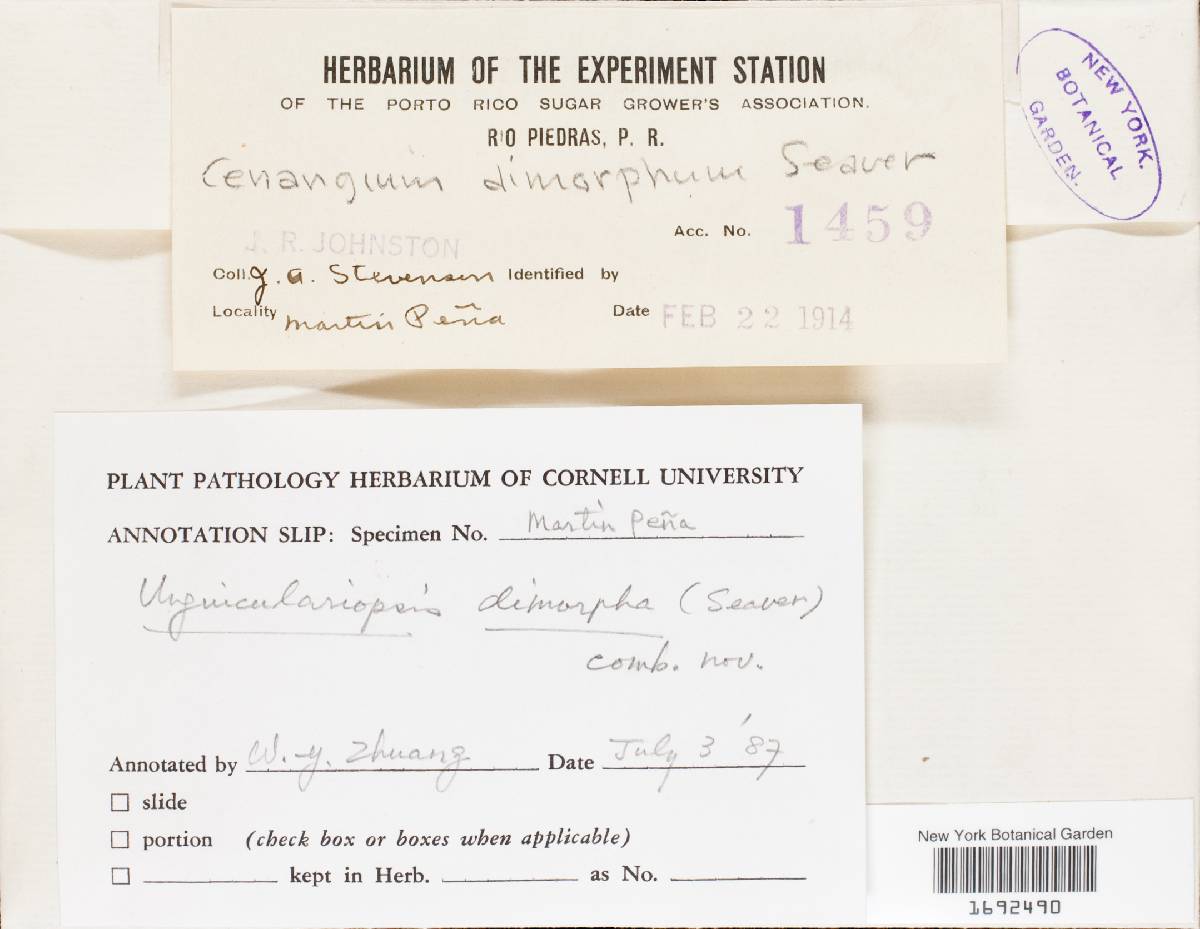 HERBARIUM OF THE EXPERIMENT STATION
OF THE PORTO RICO SUGAR GROWER'S ASSOCIATION.
RIO PIEDRAS, P. R.
Cenangium dimorphum Seaver
Acc. No. 1459
J. R. JOHNSTON
Coll. J. A. Stevenson Identified by
Locality Martín Peña Date FEB 22 1914
NEW YORK.
BOTANICAL
GARDEN.
PLANT PATHOLOGY HERBARIUM OF CORNELL UNIVERSITY
ANNOTATION SLIP: Specimen No. Martín Peña
Unguiculariopsis dimorpha (Seaver)
comb. nov.
Annotated by W.-y. Zhuang Date July 3 '87
☐ slide
☐ portion (check box or boxes when applicable)
☐ ____ kept in Herb. ____ as No. ____
New York Botanical Garden
1692490